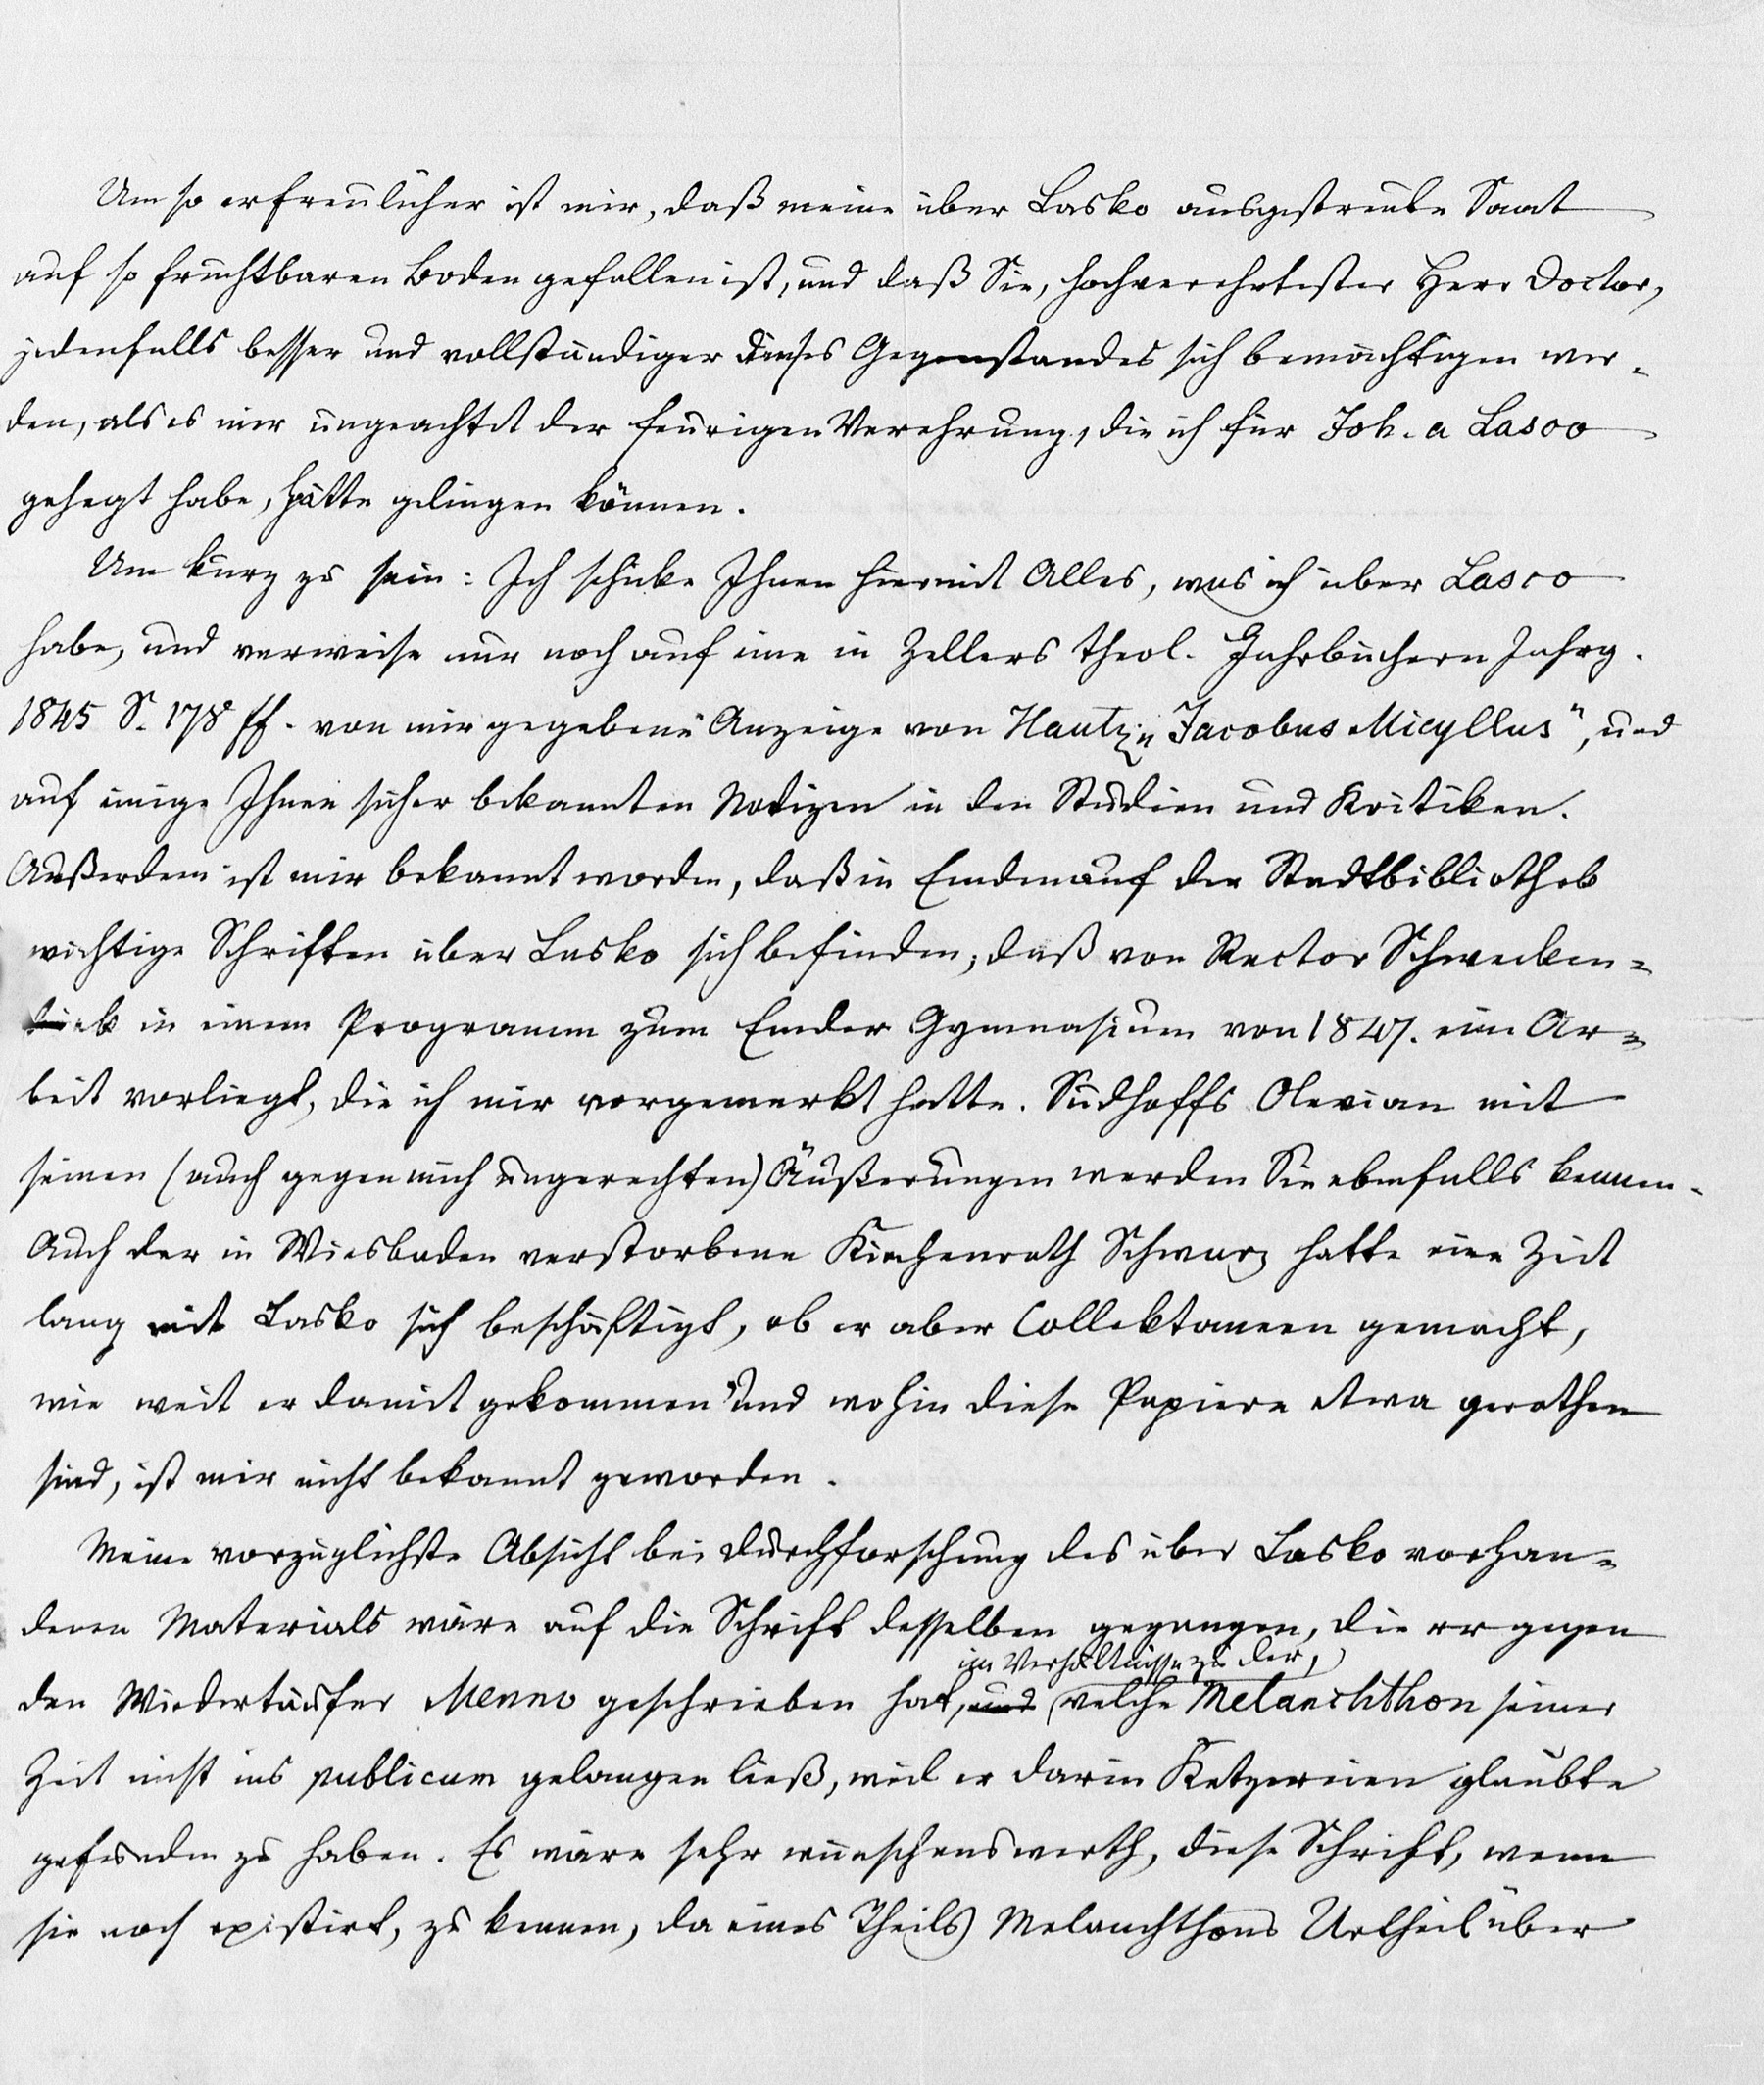 Um so erfreulicher ist mir, daß meine über Lasko ausgestreute Saat
auf so fruchtbaren Boden gefallen ist, und daß Sie, hochverehrtester Herr Doctor,
jedenfalls besser und vollständiger dieses Gegenstandes sich bemächtigen wer-
den, als es mir ungeachtet der feurigen Verehrung, die ich für Joh. a Lasco
gehegt habe, hätte gelingen können.
Um kurz zu sein: Ich schicke Ihnen hiermit Alles, was ich über Lasco
habe, und verweise nur noch auf eine in Zellers theol. Jahrbüchern Jahrg.
1845 S. 178 ff. von mir gegebene Anzeige von Hautz „Jacobus Micyllus", und
auf einige Ihnen sicher bekannten Notizen in den Studien und Kritiken.
Außerdem ist mir bekannt worden, daß in Emden auf der Stadtbibliothek
wichtige Schriften über Lasko sich befinden, daß von Rector Schwecken=
dieck in einem Programm zum Emder Gymnasium von 1847. eine Ar=
beit vorliegt, die ich mir vorgemerkt hatte. Südhoffs Olevian mit
seinen (auch gegen mich ungerechten) Äußerungen werden Sie ebenfalls kennen.
Auch der in Wiesbaden verstorbene Kirchenrath Schwarz hatte eine Zeit
lang mit Lasko sich beschäftigt, ob er aber Collektaneen gemacht,
wie weit er damit gekommen und wohin diese Papiere etwa gerathen
sind, ist mir nicht bekannt geworden.
Meine vorzüglichste Absicht bei Durchforschung des über Lasko vorhan=
denen Materials wäre auf die Schrift desselben gegangen, die er gegen
im Verhältnisse zu der,
den Wiedertäufer Menno geschrieben hat, und welche Melanchthon seiner
Zeit nicht ins publicum gelangen ließ, weil er darin Ketzereien glaubte
gefunden zu haben. Es wäre sehr wünschenswerth, diese Schrift, wenn
sie noch existirt, zu kennen, da eines Theils Melanchthons Urtheil über